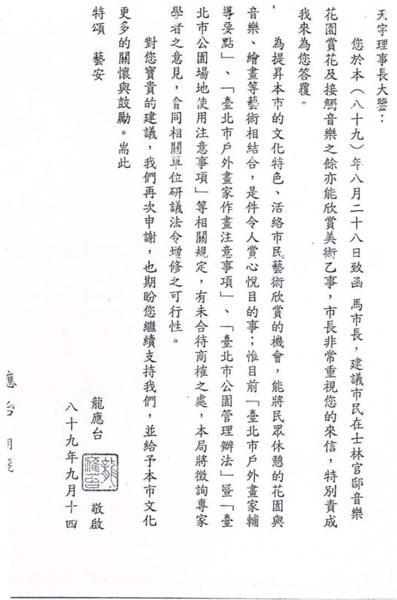 天宇理事長大鑒：
您於本（八十九）年八月二十八日致函 馬市長，建議市民在士林官邸音樂
花園賞花及接觸音樂之餘亦能欣賞美術乙事，市長非常重視您的來信，特別責成
我來為您答覆。
為提昇本市的文化特色、活絡市民藝術欣賞的機會，能將民眾休憩的花園與
音樂、繪畫等藝術相結合，是件令人賞心悅目的事；惟目前「臺北市戶外畫家輔
導要點」、「臺北市戶外畫家作畫注意事項」、「臺北市公園管理辦法」暨「臺
北市公園場地使用注意事項」等相關規定，有未合待商榷之處，本局將徵詢專家
學者之意見，會同相關單位研議法令增修之可行性。
對您寶貴的建議，我們再次申謝，也期盼您繼續支持我們，並給予本市文化
更多的關懷與鼓勵。耑此
特頌　藝安
龍應台 敬啟
八十九年九月十四